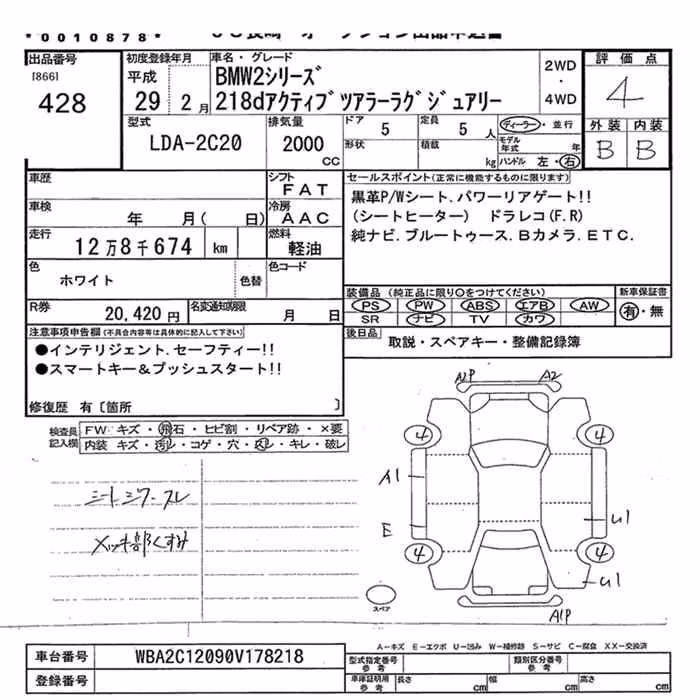 *0010878*
出品番号
[866]
428
初度登録年月
平成
29年 2月
車名・グレード
BMW2シリーズ
218dアクティブツアラーラグジュアリー
2WD
・
4WD
評価点
4
外装 内装
B B
型式
LDA-2C20
排気量
2000
CC
ドア 5
定員 5 人
形状
積載 kg
ディーラー・並行
モデル年式 年
ハンドル 左・右
車歴
車検
年 月( 日)
走行
12万8千674 km
色
ホワイト
色替
シフト
FAT
冷房
AAC
燃料
軽油
色コード
セールスポイント(正常に機能するものに限ります)
黒革P/Wシート.パワーリアゲート!!
(シートヒーター) ドラレコ(F.R)
純ナビ.ブルートゥース.Bカメラ.ETC.
R券
20,420円
名変通知期限
月 日
装備品(純正品に限り○をつけてください)
PS PW ABS エアB AW
SR ナビ TV カワ
新車保証書
有・無
後日品
取説・スペアキー・整備記録簿
注意事項申告欄(不具合内容等は具体的に記入して下さい)
●インテリジェント.セーフティー!!
●スマートキー&プッシュスタート!!
修復歴 有〔箇所 〕
検査員記入欄
FW キズ・飛石・ヒビ割・リペア跡・×要
内装 キズ・汚レ・コゲ・穴・スレ・キレ・破レ
シートシワ・スレ
メッキ部くすみ
A2P A2
4 4
A1
E
U1
4 4
U1
スペア
A1P
A-キズ E-エクボ U-凹み W-補修跡 S-サビ C-腐食 XX-交換済
車台番号
WBA2C12090V178218
登録番号
型式指定番号 参考
類別区分番号 参考
車庫証明用 参考
長さ cm
幅 cm
高さ cm